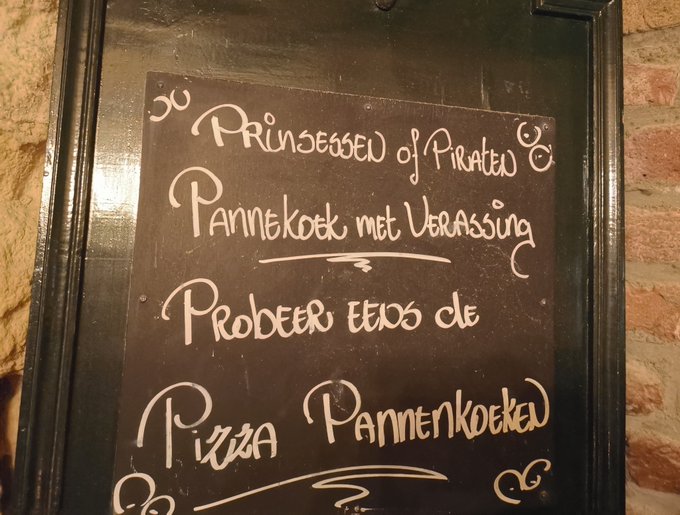 Prinsessen of Piraten
Pannekoek met Verassing
Probeer eens de
Pizza Pannenkoeken